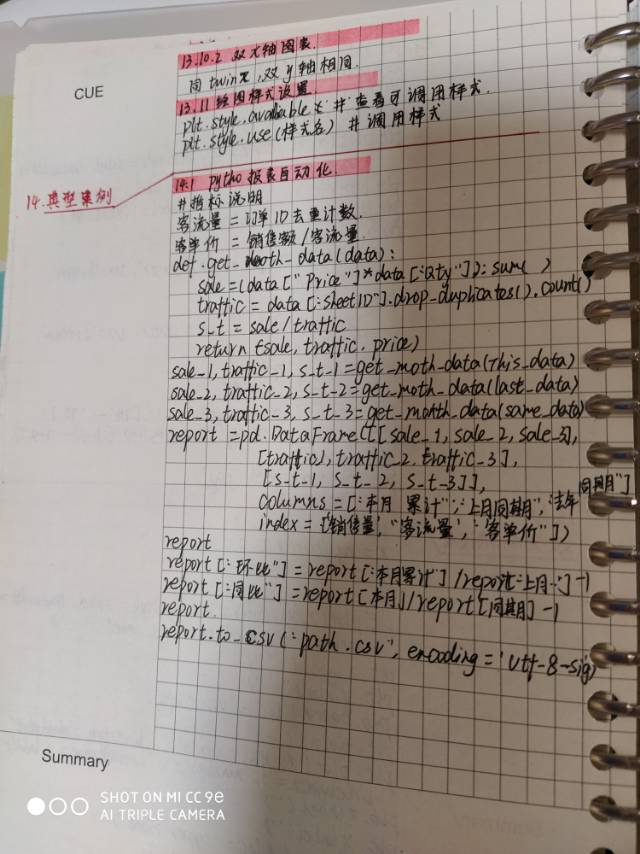 CUE
13.10.2 双X轴图表.
用 twinx, 双y轴相同
13.11 绘图样式设置
plt.style.available # 查看可调用样式.
plt.style.use(样式名) # 调用样式
14.典型案例
14.1 pytho 报表自动化
#指标说明
客流量 = 订单ID去重计数.
客单价 = 销售额/客流量
def.get_moth_data(data):
sale=(data["Price"]*data["Qty"]).sum( )
traffic = data["SheetID"].drop_duplicates().count()
s_t = sale/traffic
return (sale, traffic, price)
sale_1, traffic_1, s_t_1=get_moth_data(This_data)
sale_2, traffic_2, s_t_2=get_moth_data(last_data)
sale_3, traffic_3, s_t_3=get_month_data(same_data)
report =pd.DataFrame([[sale_1, sale_2, sale_3],
[traffic1, traffic_2, traffic_3],
[s_t_1, s_t_2, s_t_3]],
columns=["本月累计","上月同期","去年同期"]
index = ["销售量","客流量","客单价"])
report
report["环比"]=report["本月累计"]/report["上月…"]-1
report["同比"]=report[本月]/report[同期]-1
report.
report.to_csv("path.csv", encoding='utf-8-sig)
Summary
SHOT ON MI CC 9e
AI TRIPLE CAMERA